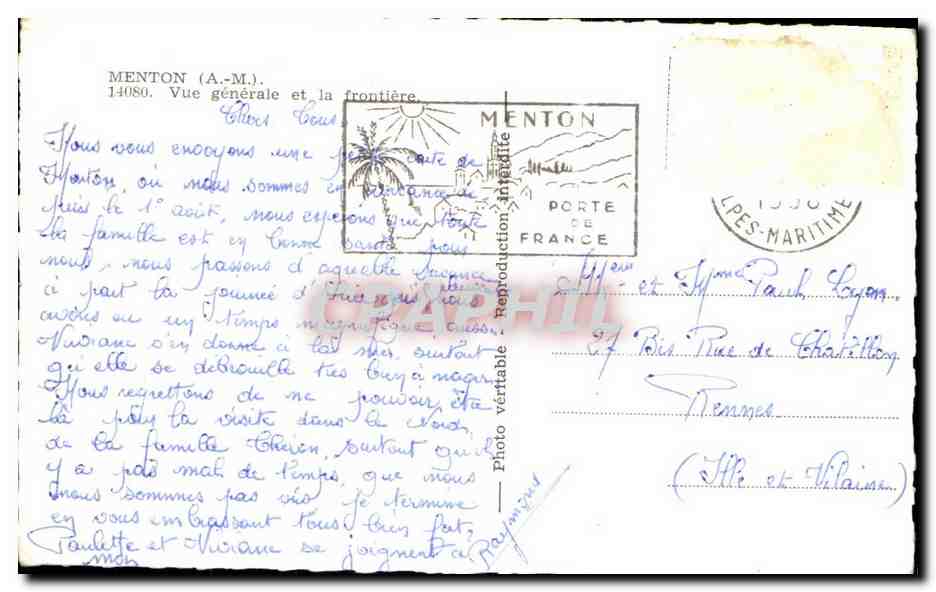 MENTON (A.-M.).
14080. Vue générale et la frontière.
Chers Tous
Nous vous envoyons une petite carte de
Menton, où nous sommes en vacance de
puis le 1° août, nous espérons que toute
la famille est en bonne santé, pour
nous, nous passons d'agréable vacance
à part la journée d'hier nous
avons eu un temps magnifique, aussi
Viviane s'en donne à la mer, surtout
qu'elle se débrouille très bien à nager
Nous regrettons de ne pouvoir être
là pour la visite dans le Nord,
de la famille surtout qu'il
y a pas mal de temps, que nous
nous sommes pas vus je termine
en vous embrassant tous bien fort,
Paulette et Viviane se joignent à
moi
Raymond
Photo véritable - Reproduction interdite
MENTON
PORTE
DE
FRANCE
LPES-MARITIME
CPAPHIL
et Mme Paul
27 Bis Rue de Chatillon
Rennes
(Ille et Vilaine)